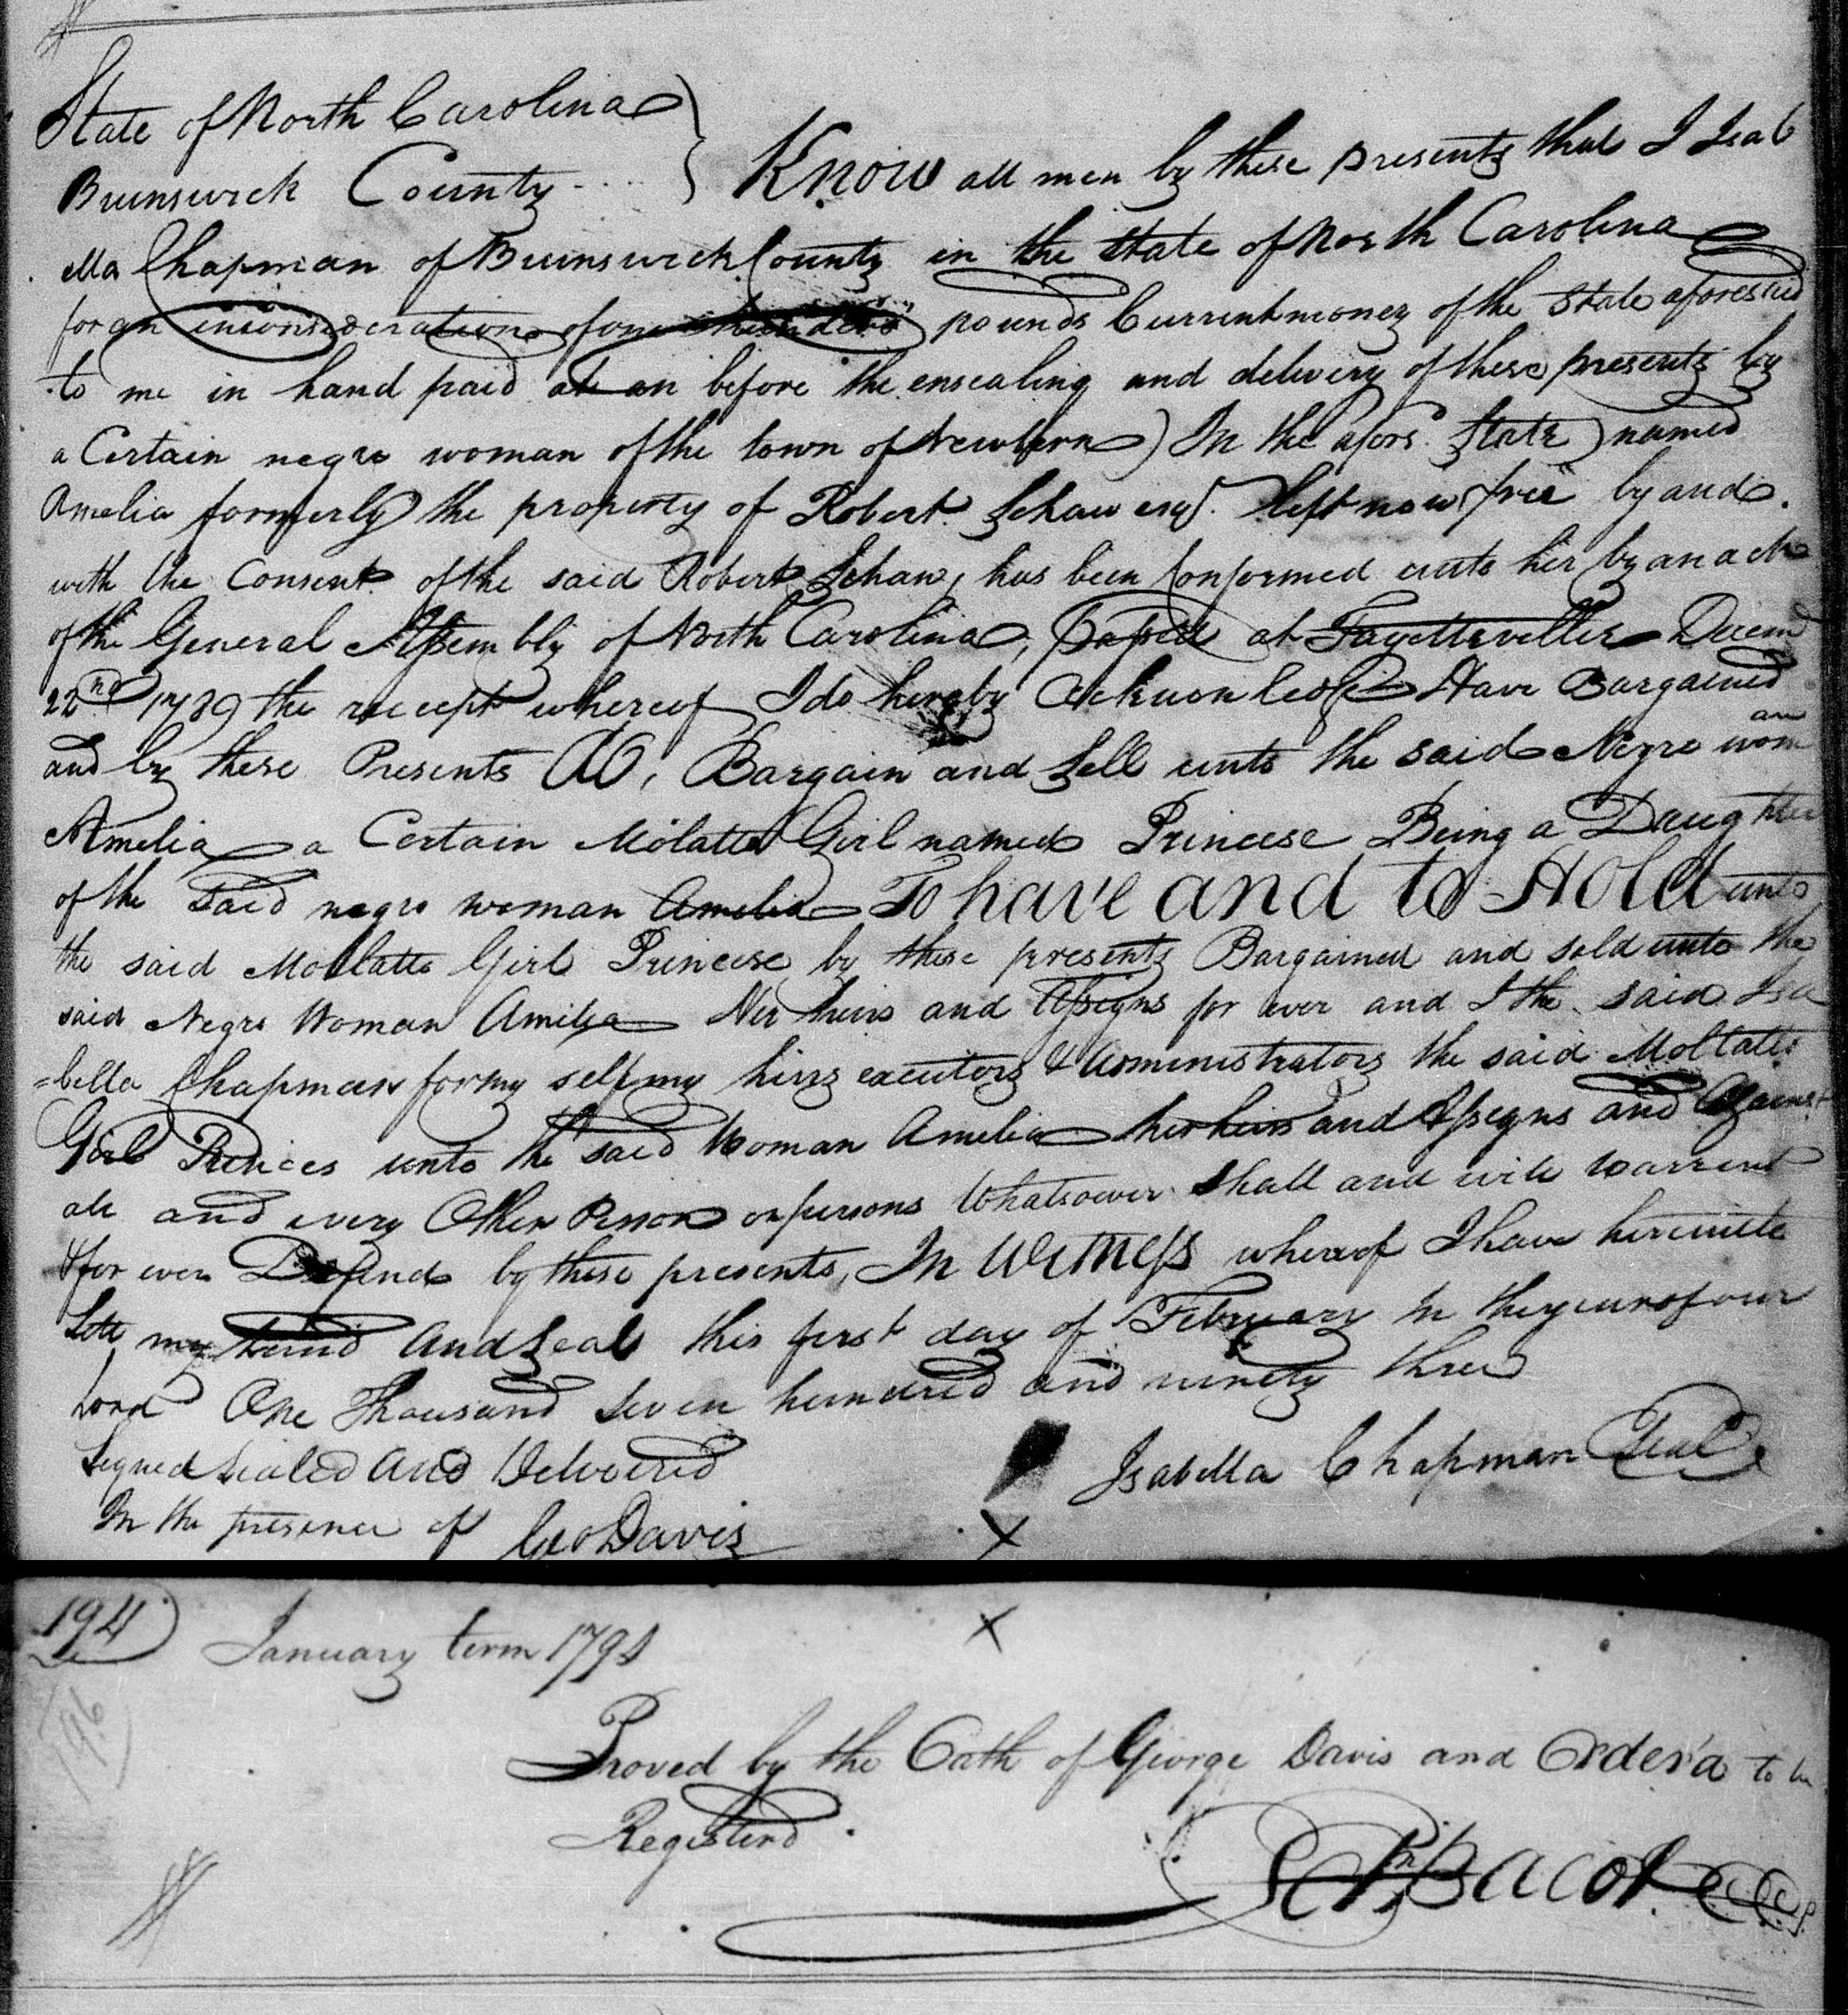 State of North Carolina
Brunswick County .... } Know all men by these presents that I Isab
ella Chapman of Brunswick County in the State of North Carolina
for an inconsideration of one hundred pounds Current money of the State aforesaid
to me in hand paid at an before the ensealing and delivery of these presents by
a Certain negro woman of the town of Newbern) In the afors. State) named
Amelia formerly the property of Robert Schaw esqr. left now free by and
with the Consent of the said Robert Schaw, has been Conformed unto her by an act
of the General Assembly of North Carolina, Passed at Fayetteville Decem
22nd 1789 the receipt whereof I do hereby Acknowledge Have Bargained
and by these Presents do, Bargain and Sell unto the said Negro woman
Amelia a Certain Molatto Girl named Princese Being a Daughter
of the Said negro woman Amelia To have and to Hold unto
the said Mollatto Girl Princese by these presents Bargained and sold unto the
said Negro Woman Amilia Her heirs and Assigns for ever and I the said Isa
=bella Chapman for my self my hirs executors & Administrators the said Mollatto
Girl Princes unto the said Woman Amelia her heirs and Assigns and Against
all and every Other Person or persons Whatsoever shall and will warrent
& for ever Defend by these presents, In Witness whereof I have hereunto
Sett my hand And Seal this first day of February in the year of our
Lord One Thousand Seven hundred and ninety three
Signed Sealed And Delivered
Isabella Chapman Seal
In the presence of Geo Davis X
194 January term 1794 X
196
Proved by the Oath of George Davis and Order'd to be
Registerd.
Bacot CC